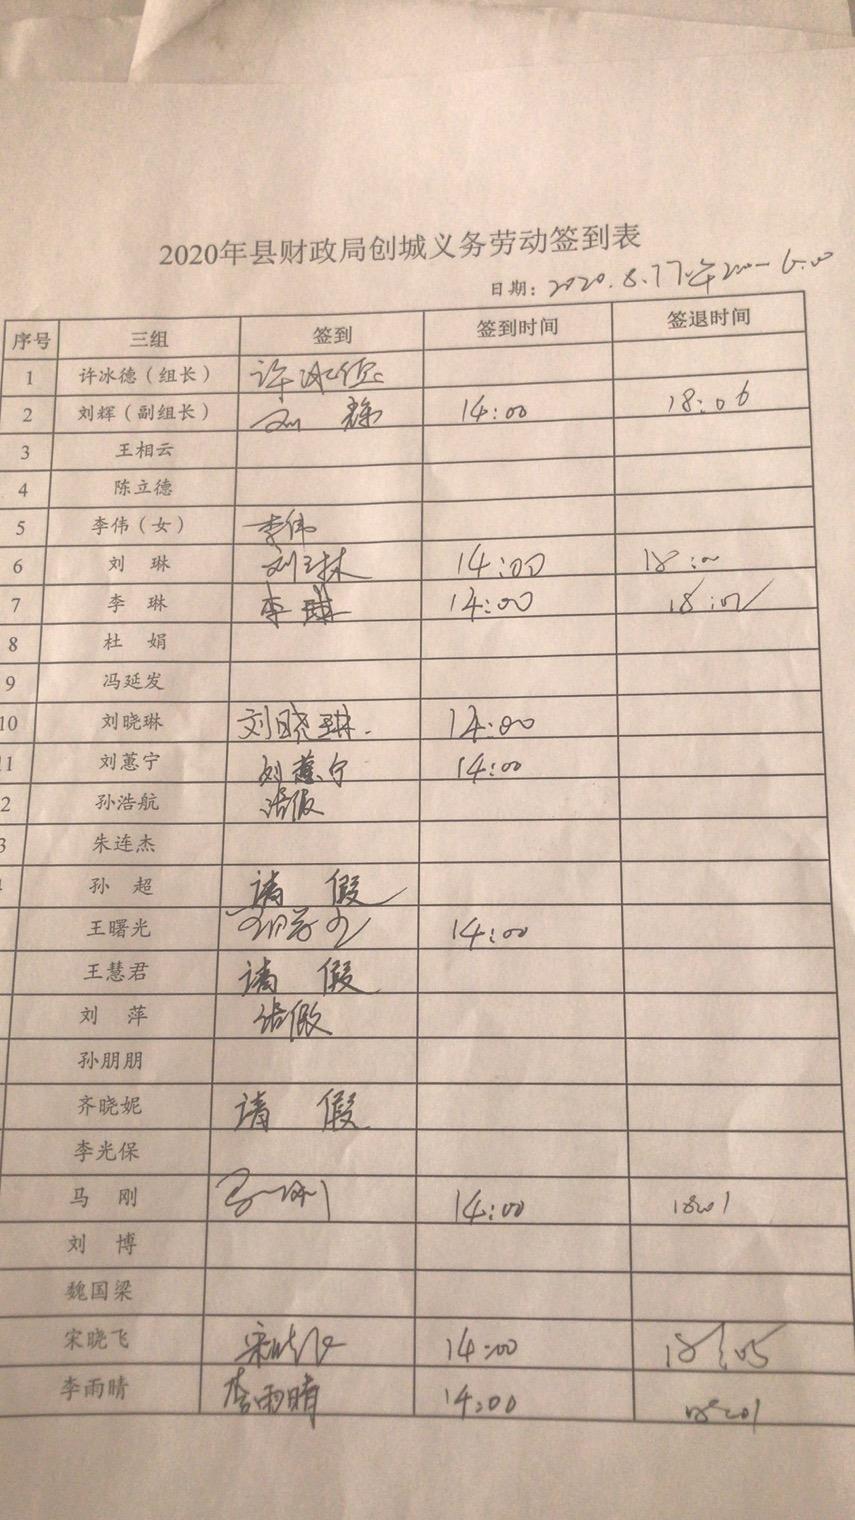 2020年县财政局创城义务劳动签到表
日期：2020.8.17
序号 三组 签到 签到时间 签退时间
1 许冰德（组长） 许冰德
2 刘辉（副组长） 刘辉 14:00 18:06
3 王相云
4 陈立德
5 李伟（女） 李伟
6 刘 琳 刘琳 14:00 18:00
7 李 琳 李琳 14:00 18:02
8 杜 娟
9 冯延发
10 刘晓琳 刘晓琳. 14:00
11 刘蕙宁 刘蕙宁 14:00
2 孙浩航 请假
3 朱连杰
孙 超 请 假
王曙光 14:00
王慧君 请 假
刘 萍 请假
孙朋朋
齐晓妮 请 假
李光保
马 刚 马刚 14:00 18:01
刘 博
魏国梁
宋晓飞 宋晓飞 14:00 18:05
李雨晴 李雨晴 14:00 18:01